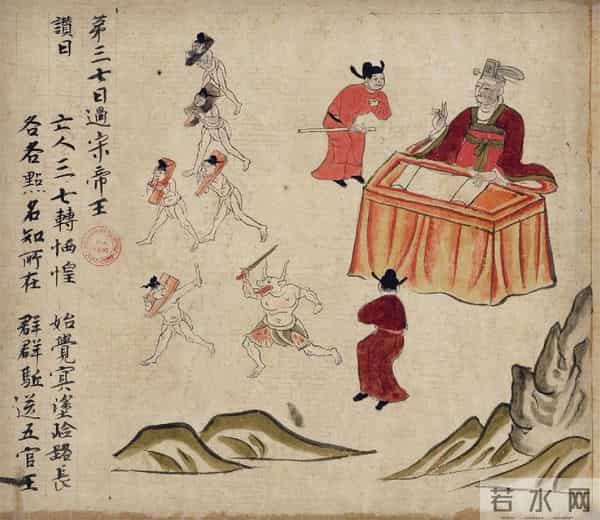 第三七日過宋帝王
讚曰 亡人三七轉恓惶 始覺冥塗險路長
各各點名知所在 群群駈送五官王
若水网